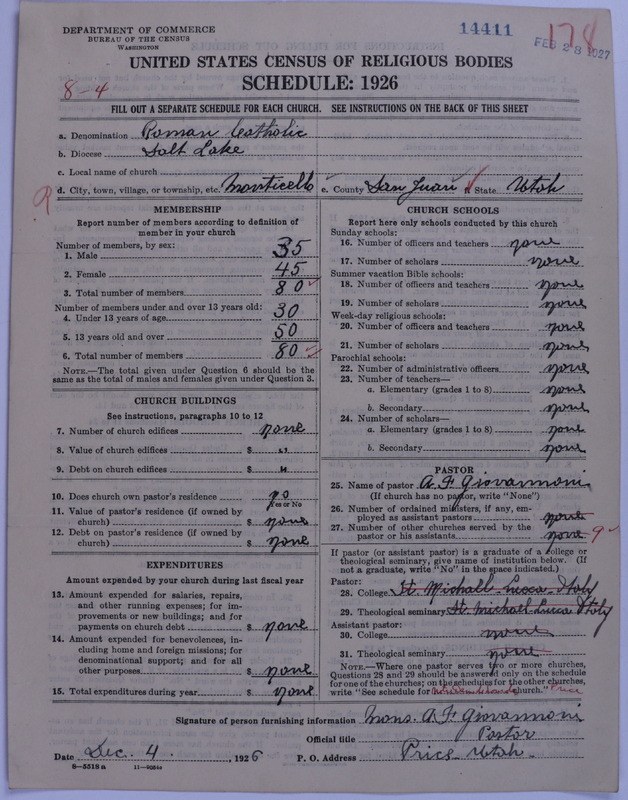 DEPARTMENT OF COMMERCE
BUREAU OF THE CENSUS
WASHINGTON
14411
178
FEB 28 1927
UNITED STATES CENSUS OF RELIGIOUS BODIES
SCHEDULE: 1926
8-4
FILL OUT A SEPARATE SCHEDULE FOR EACH CHURCH. SEE INSTRUCTIONS ON THE BACK OF THIS SHEET
a. Denomination Roman Catholic
b. Diocese Salt Lake
c. Local name of church
d. City, town, village, or township, etc. Monticello e. County San Juan f. State Utah
MEMBERSHIP
Report number of members according to definition of
member in your church
Number of members, by sex:
1. Male 35
2. Female 45
3. Total number of members 80
Number of members under and over 13 years old:
4. Under 13 years of age 30
5. 13 years old and over 50
6. Total number of members 80
NOTE.—The total given under Question 6 should be
same as the total of males and females given under Question 3.
CHURCH BUILDINGS
See instructions, paragraphs 10 to 12
7. Number of church edifices none
8. Value of church edifices $ "
9. Debt on church edifices $ "
10. Does church own pastor's residence no
Yes or No
11. Value of pastor's residence (if owned by
church) $ none
12. Debt on pastor's residence (if owned by
church) $ none
EXPENDITURES
Amount expended by your church during last fiscal year
13. Amount expended for salaries, repairs,
and other running expenses; for im-
provements or new buildings; and for
payments on church debt $ none
14. Amount expended for benevolences, in-
cluding home and foreign missions; for
denominational support; and for all
other purposes $ none
15. Total expenditures during year $ none
CHURCH SCHOOLS
Report here only schools conducted by this church
Sunday schools:
16. Number of officers and teachers none
17. Number of scholars none
Summer vacation Bible schools:
18. Number of officers and teachers none
19. Number of scholars none
Week-day religious schools:
20. Number of officers and teachers none
21. Number of scholars none
Parochial schools:
22. Number of administrative officers none
23. Number of teachers—
a. Elementary (grades 1 to 8) none
b. Secondary none
24. Number of scholars—
a. Elementary (grades 1 to 8) none
b. Secondary none
PASTOR
25. Name of pastor A. F. Giovannoni
(If church has no pastor, write "None")
26. Number of ordained ministers, if any, em-
ployed as assistant pastors none
27. Number of other churches served by the
pastor or his assistants none 9
If pastor (or assistant pastor) is a graduate of a college or
theological seminary, give name of institution below. (If
not a graduate, write "No" in the space indicated.)
Pastor:
28. College St. Michall - Lucca - Italy
29. Theological seminary St. Michall Lucca Italy
Assistant pastor:
30. College none
31. Theological seminary none
NOTE.—Where one pastor serves two or more churches,
Questions 28 and 29 should be answered only on the schedule
for one of the churches; on the schedules for the other churches,
write "See schedule for church." Price
Signature of person furnishing information Mons. A F Giovannoni
Official title Pastor
Date Dec. 4, 1926 P. O. Address Price Utah
8—5518 a 11—9054a